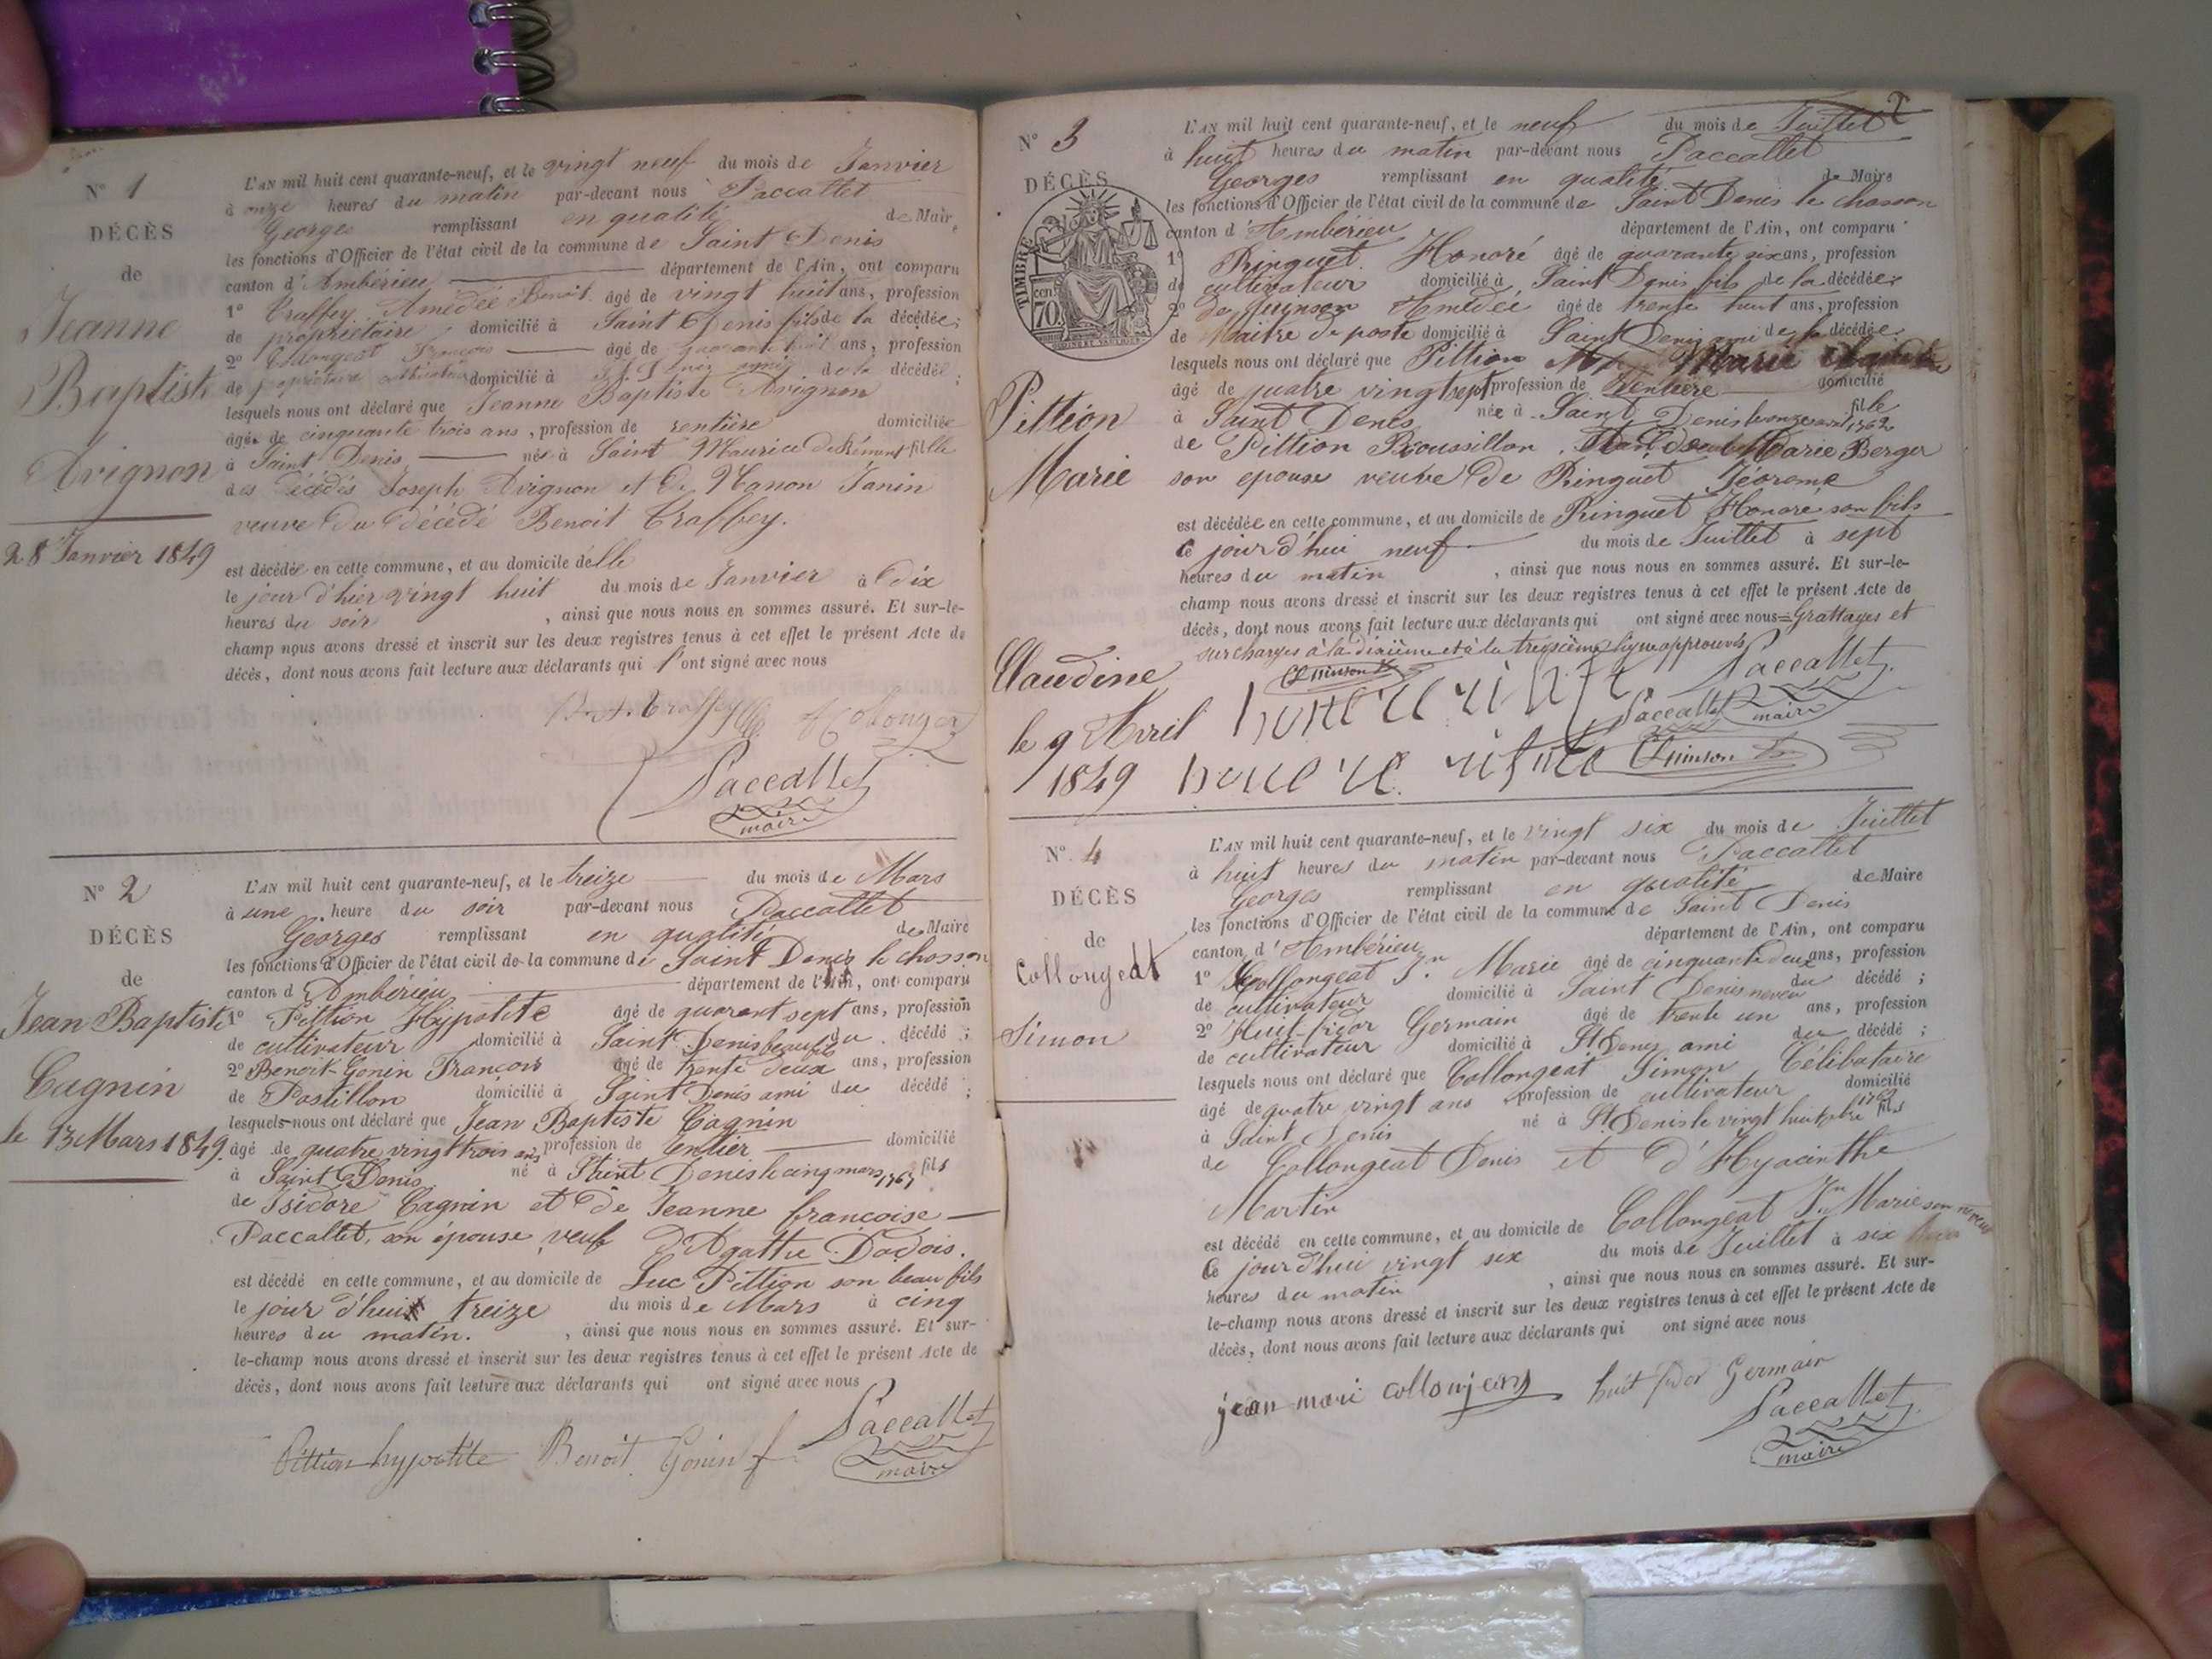 N° 1
DÉCÈS
de
Jeanne
Baptiste
Avignon
28 Janvier 1849
L'AN mil huit cent quarante-neuf, et le vingt neuf du mois de Janvier
à onze heures du matin par-devant nous Paccallet
Georges remplissant en qualité de Maire
les fonctions d'Officier de l'état civil de la commune de Saint Denis
canton d'Ambérieu département de l'Ain, ont comparu
1° Traffey Amédée Benoit âgé de vingt huit ans, profession
de propriétaire domicilié à Saint Denis fils de la décédée;
2° Collongeat François âgé de quarante huit ans, profession
de propriétaire cultivateur domicilié à St Denis ami de la décédée;
lesquels nous ont déclaré que Jeanne Baptiste Avignon
âgée de cinquante trois ans, profession de rentière domiciliée
à Saint Denis née à Saint Maurice de Rémens fille
des décédés Joseph Avignon et de Manon Janin
veuve du décédé Benoit Traffey.
est décédée en cette commune, et au domicile d'elle
le jour d'hier vingt huit du mois de Janvier à dix
heures du soir, ainsi que nous nous en sommes assuré. Et sur-le-
champ nous avons dressé et inscrit sur les deux registres tenus à cet effet le présent Acte de
décès, dont nous avons fait lecture aux déclarants qui l'ont signé avec nous
Paccallet
maire
N° 2
DÉCÈS
de
Jean Baptiste
Cagnin
le 13 Mars 1849.
L'AN mil huit cent quarante-neuf, et le treize du mois de Mars
à une heure du soir par-devant nous Paccallet
Georges remplissant en qualité de Maire
les fonctions d'Officier de l'état civil de la commune de Saint Denis le chosson
canton d'Ambérieu département de l'Ain, ont comparu
1° Pittion Hypolite âgé de quarant sept ans, profession
de cultivateur domicilié à Saint Denis beau fils du décédé;
2° Benoit Gonin François âgé de trente deux ans, profession
de Postillon domicilié à Saint Denis ami du décédé;
lesquels nous ont déclaré que Jean Baptiste Cagnin
âgé de quatre vingt trois ans profession de rentier domicilié
à Saint Denis né à Saint Denis le cinq mars fils
de Isidore Cagnin et de Jeanne françoise
Paccallet, son épouse veuf d'Agathe Dodois.
est décédé en cette commune, et au domicile de Luc Pittion son beau fils
le jour d'hui treize du mois de Mars à cinq
heures du matin., ainsi que nous nous en sommes assuré. Et sur-
le-champ nous avons dressé et inscrit sur les deux registres tenus à cet effet le présent Acte de
décès, dont nous avons fait lecture aux déclarants qui ont signé avec nous
Pittion hypolite Benoit Gonin f Paccallet
maire
2
N° 3
DÉCÈS
TIMBRE
70 cen.
Pittion
Marie
Claudine
le 9 Avril
1849
L'AN mil huit cent quarante-neuf, et le neuf du mois de Juillet
à huit heures du matin par-devant nous Paccallet
Georges remplissant en qualité de Maire
les fonctions d'Officier de l'état civil de la commune de Saint Denis le chosson
canton d'Ambérieu département de l'Ain, ont comparu
1° Ringuet Honoré âgé de quarante six ans, profession
de cultivateur domicilié à Saint Denis fils de la décédée;
2° de Quinson Amédée âgé de trente huit ans, profession
de Maitre de poste domicilié à Saint Denis ami de la décédée;
lesquels nous ont déclaré que Pittion Marie
âgé de quatre vingt sept profession de Rentière domicilié
à Saint Denis née à Saint Denis le onze avril 1762 fille
de Pittion Broussillon, Marie Berger
son epouse veuve de Ringuet Jéorome
est décédée en cette commune, et au domicile de Ringuet Honoré son fils
Ce jour d'hui neuf du mois de Juillet à sept
heures du matin, ainsi que nous nous en sommes assuré. Et sur-le-
champ nous avons dressé et inscrit sur les deux registres tenus à cet effet le présent Acte de
décès, dont nous avons fait lecture aux déclarants qui ont signé avec nous = Grattages et
surcharges à la dixième et à la treizième ligne approuvés
Paccallet
Paccallet maire
N° 4
DÉCÈS
de
Collongeat
Simon
L'AN mil huit cent quarante-neuf, et le vingt six du mois de Juillet
à huit heures du matin par-devant nous Paccallet
Georges remplissant en qualité de Maire
les fonctions d'Officier de l'état civil de la commune de Saint Denis
canton d'Ambérieu département de l'Ain, ont comparu
1° Collongeat Jn Marie âgé de cinquante deux ans, profession
de cultivateur domicilié à Saint Denis neveu du décédé;
2° Huit-fidor Germain âgé de trente un ans, profession
de cultivateur domicilié à St Denis ami du décédé;
lesquels nous ont déclaré que Collongeat Simon Célibataire
âgé de quatre vingt ans profession de cultivateur domicilié
à Saint Denis né à St Denis le vingt huit fils
de Collongeat Denis et d'Hyacinthe
Martin
est décédé en cette commune, et au domicile de Collongeat Jn Marie son neveu
Ce jour d'hui vingt six du mois de Juillet à six
heures du matin, ainsi que nous nous en sommes assuré. Et sur-
le-champ nous avons dressé et inscrit sur les deux registres tenus à cet effet le présent Acte de
décès, dont nous avons fait lecture aux déclarants qui ont signé avec nous
jean marie collonjeat huit fidor Germain
Paccallet
maire